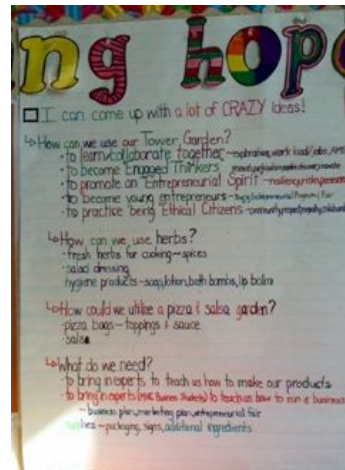 ng hop
I can come up with a lot of CRAZY Ideas!
How can we use our Tower Garden?
· to learn/collaborate together ~
· to become Engaged Thinkers
· to promote an Entrepreneurial Spirit ~
· to become young entrepreneurs ~
· to practice being Ethical Citizens ~
How can we use herbs?
· fresh herbs for cooking ~ spices
· salad dressing
hygiene products ~ soap, lotion, bath bombs, lip balm
How could we utilize a pizza & salsa garden?
· pizza bags ~ toppings & sauce
· salsa
What do we need?
· to bring in experts to teach us how to make our products
· to bring in experts Business Students) to teach us how to run a business
~ business plan, marketing plan, entrepreneurial fair
~ packaging, signs, additional ingredients